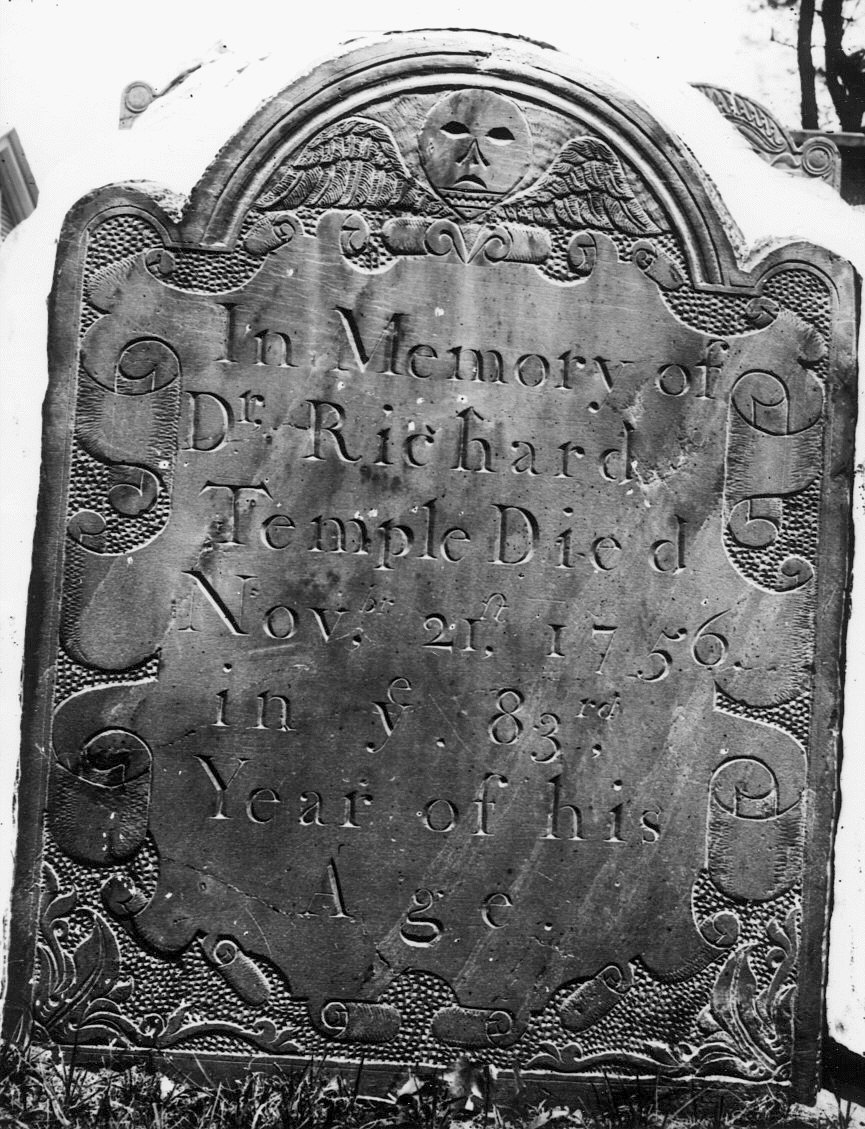 In Memory of
Dr. Richard
Temple Died
Novbr. 21st. 1756.
in ye. 83rd.
Year of his
Age.